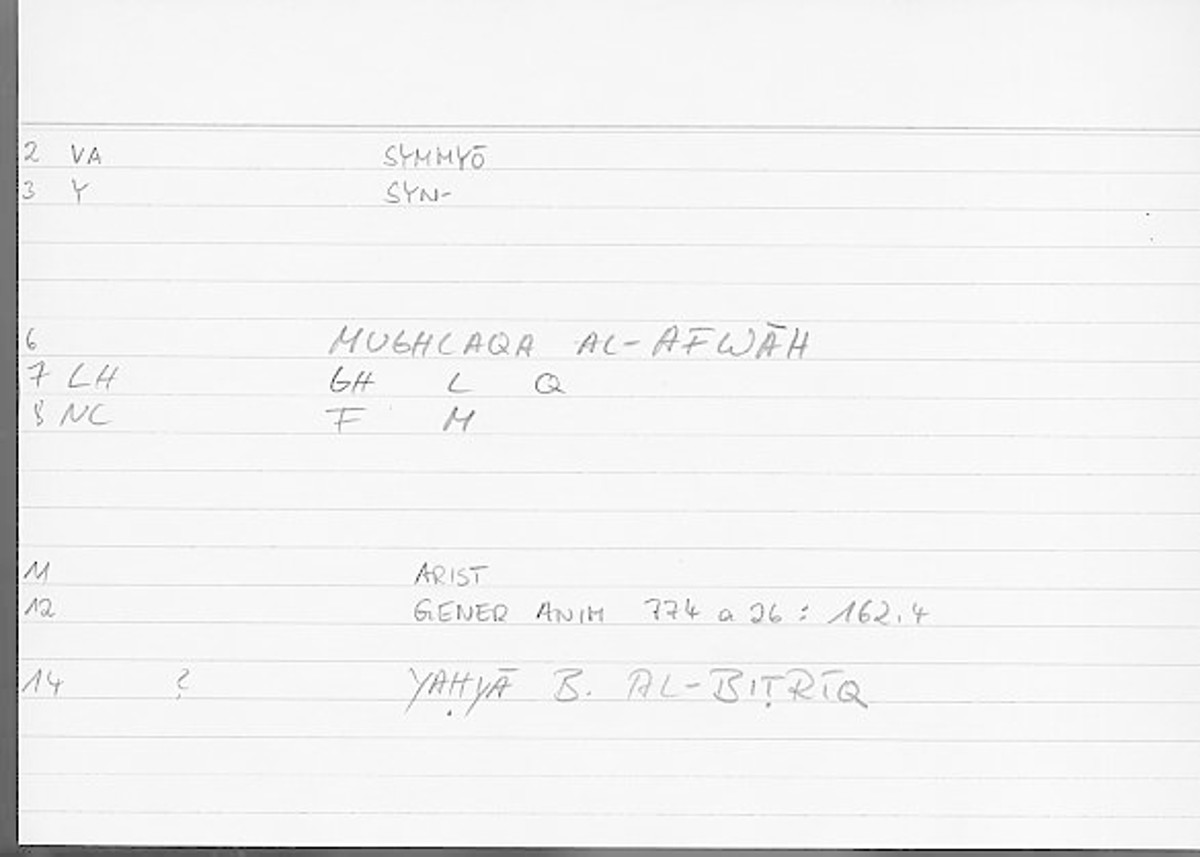 2 VA SYMMYŌ
3 Y SYN-
6 MUGHLAQA AL-AFWĀH
7 LH GH L Q
8 NC F M
11 ARIST
12 GENER ANIM 774 a 26 : 162.4
14 ? YAḤYĀ B. AL-BIṬRĪQ